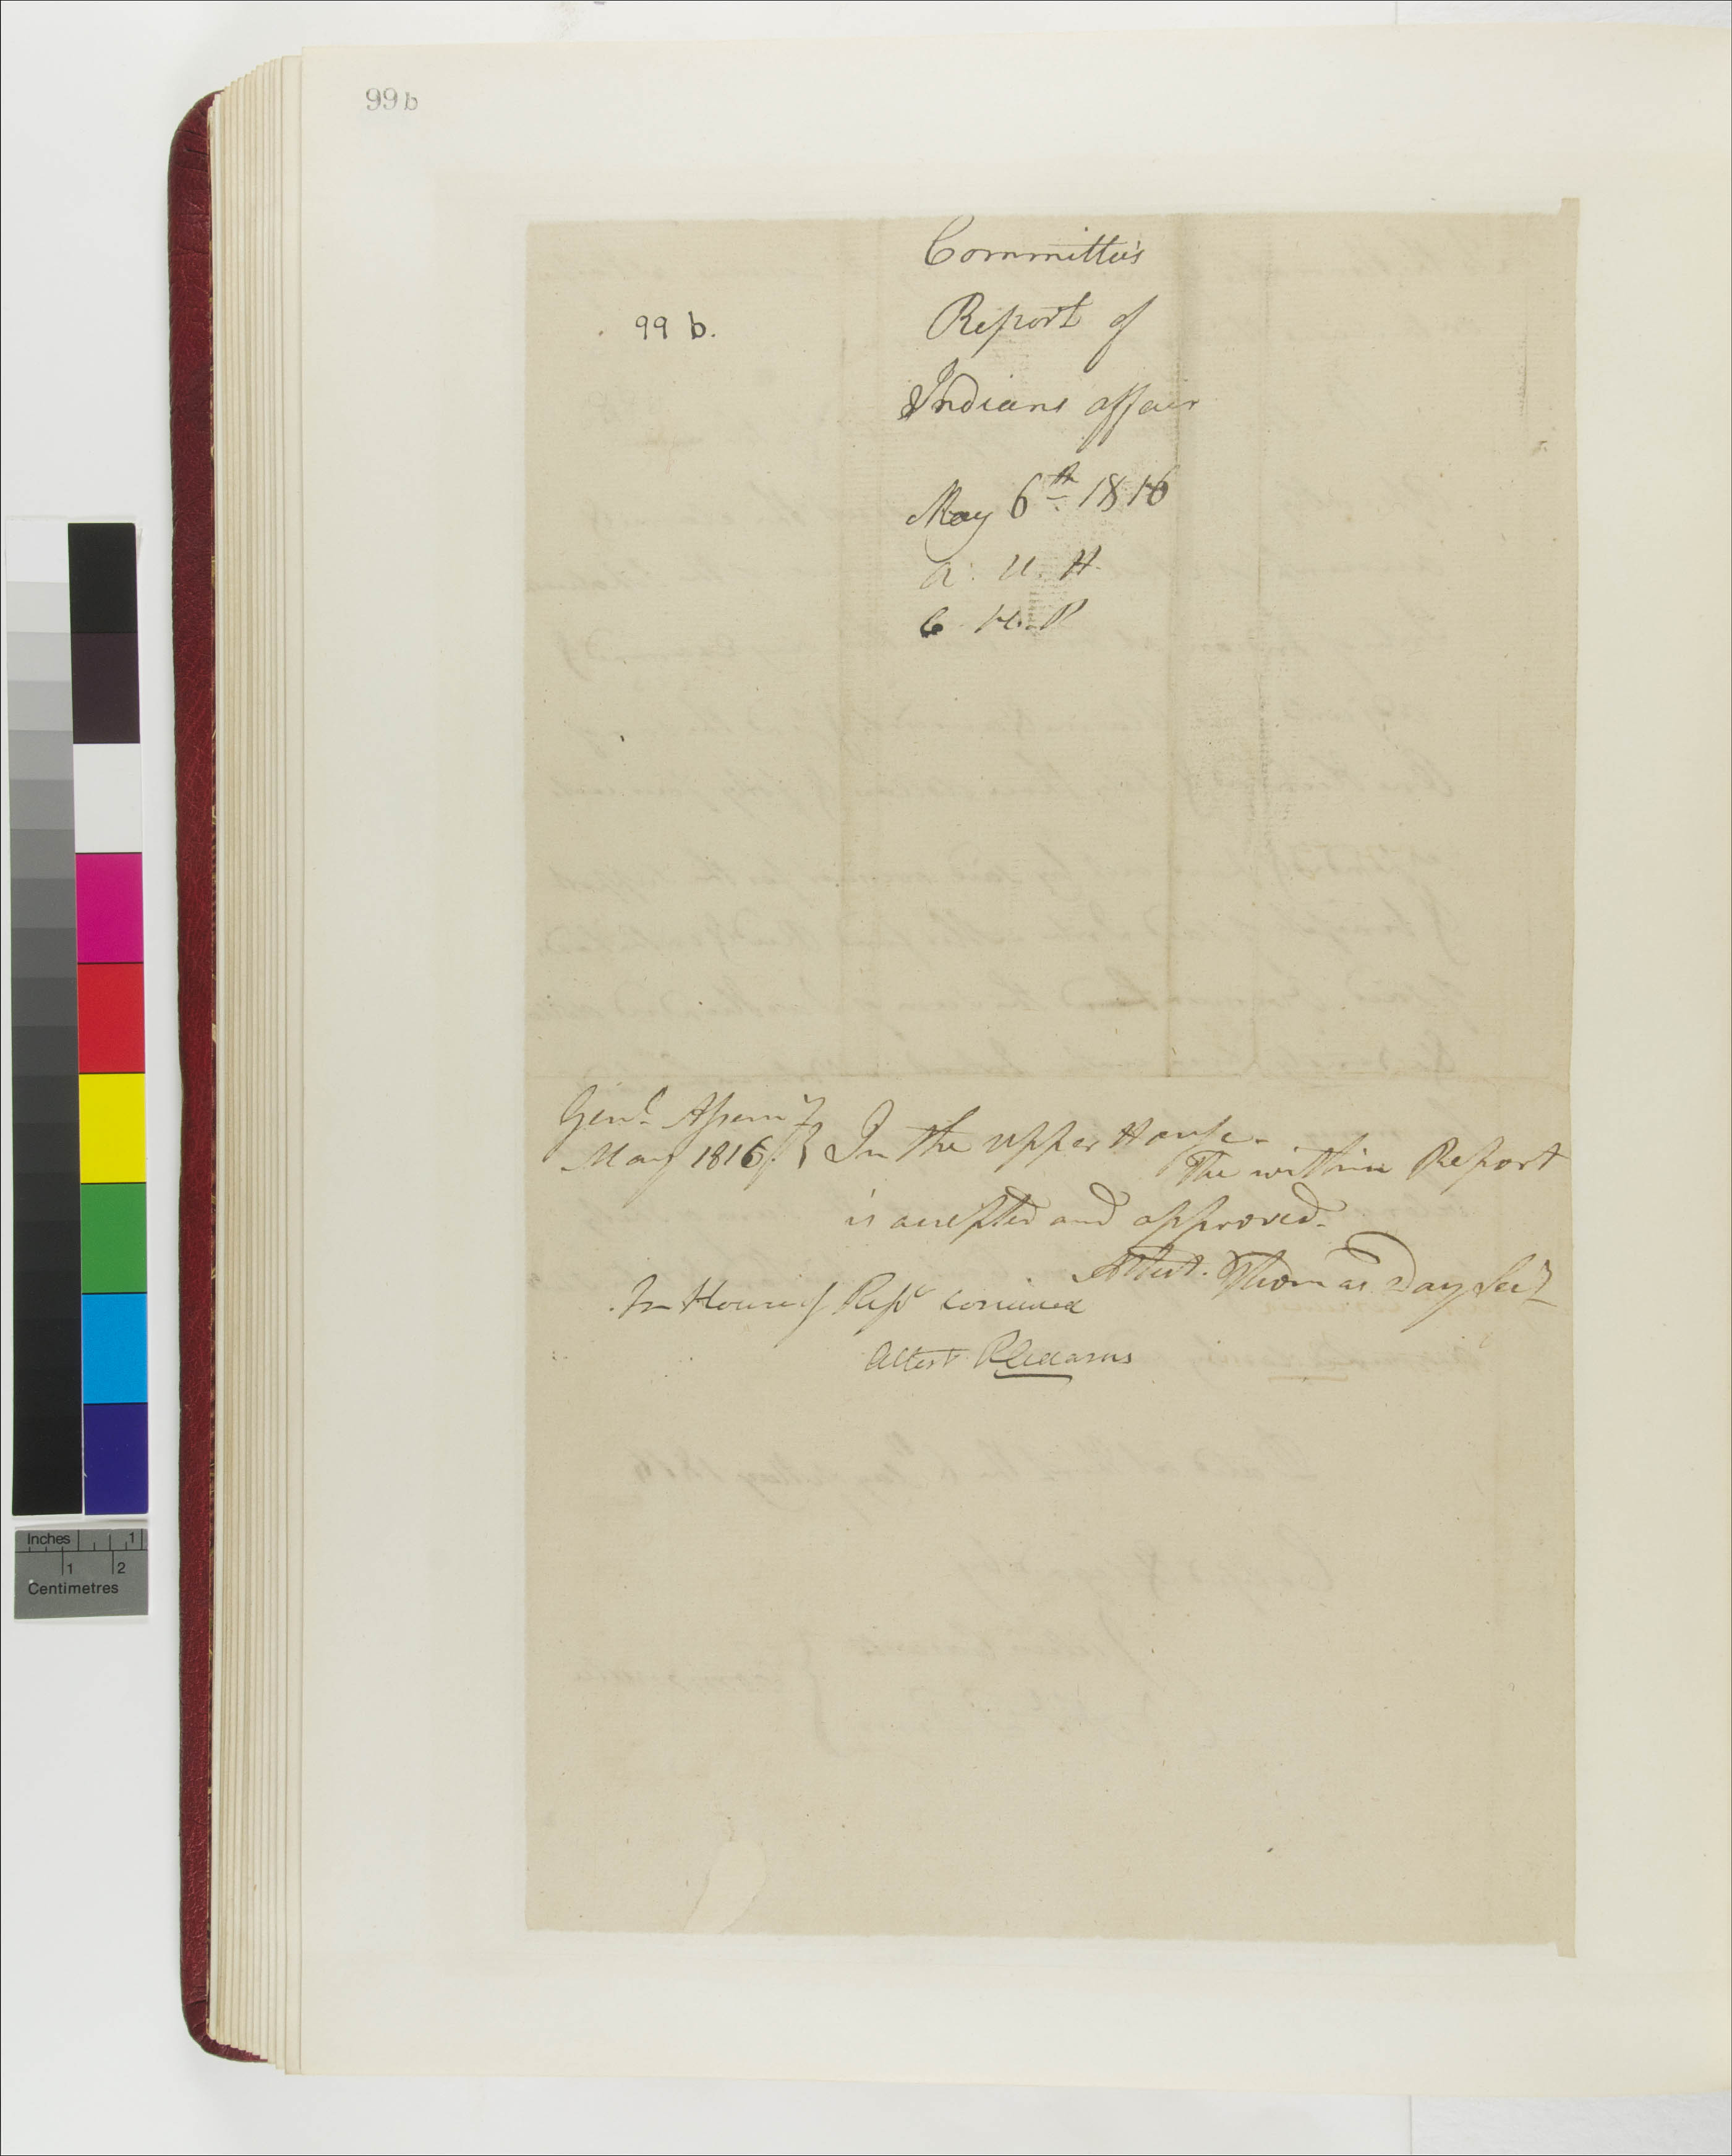 99b
99 b.
Committee's
Report of
Indians affair
May 6th 1816
a. U. H.
C. H. R
Genl. Assemy
May 1816. } In the upper House.
The within Report
is accepted and approved.
Attest. Thomas Day Secy
In House of Repr concurred
Attest
Inches 1
1 2
Centimetres